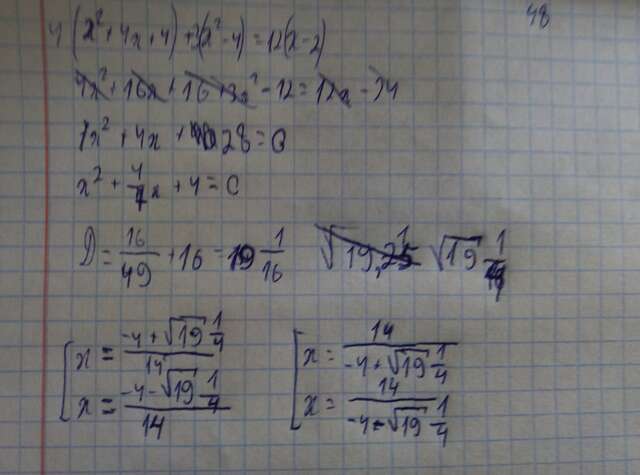 48
4(x²+4x+4)+3(x²-4)=12(x-2)
4x²+16x+16+3x²-12=12x-24
7x²+4x+28=0
x²+4/7x+4=0
D=16/49+16=19 1/16 √19,25 √19 1/4
x=(-4+√19 1/4)/14 x=14/(-4+√19 1/4)
x=(-4-√19 1/4)/14 x=14/(-4-√19 1/4)